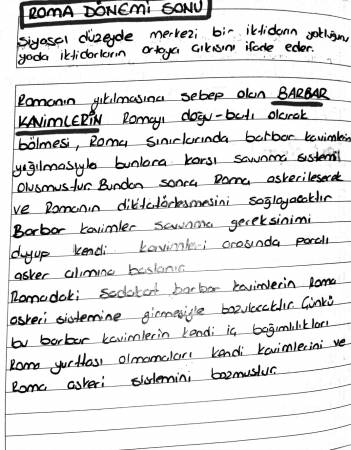 ROMA DÖNEMİ SONU
Siyasal düzeyde merkezi bir iktidarın yokluğunu
yada iktidarların ortaya çıkışını ifade eder.
Romanın yıkılmasına sebep olan BARBAR
KAVİMLERİN Romayı doğu-batı olarak
bölmesi, Roma sınırlarında barbar kavimlerin
yığılmasıyla bunlara karşı savunma sistemi
oluşmuştur. Bundan sonra Roma askerileşecek
ve Romanın diktatörleşmesini sağlayacaktır
Barbar kavimler savunma gereksinimi
duyup kendi kavimleri arasında paralı
asker alımına başlanır
Romadaki sadakat barbar kavimlerin Roma
askeri sistemine girmesiyle bozulacaktır. Çünkü
bu barbar kavimlerin kendi iç bağımlılıkları
Roma yurttaşı olmamaları kendi kavimlerini ve
Roma askeri sistemini bozmuştur